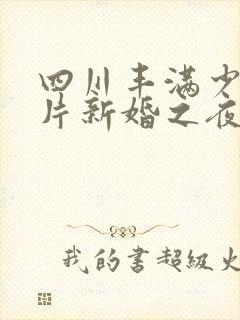 四川丰满少
片新婚之夜
我的书超级火